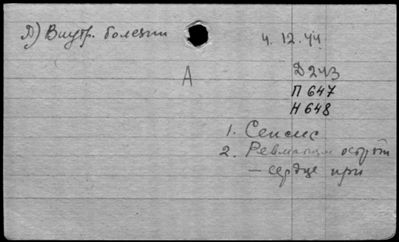 Д) Внутр. болезни
4. 12. 44
А
Д 243
П 647
Н 648
1. Сепсис
2. Ревматизм острый
— сердце при